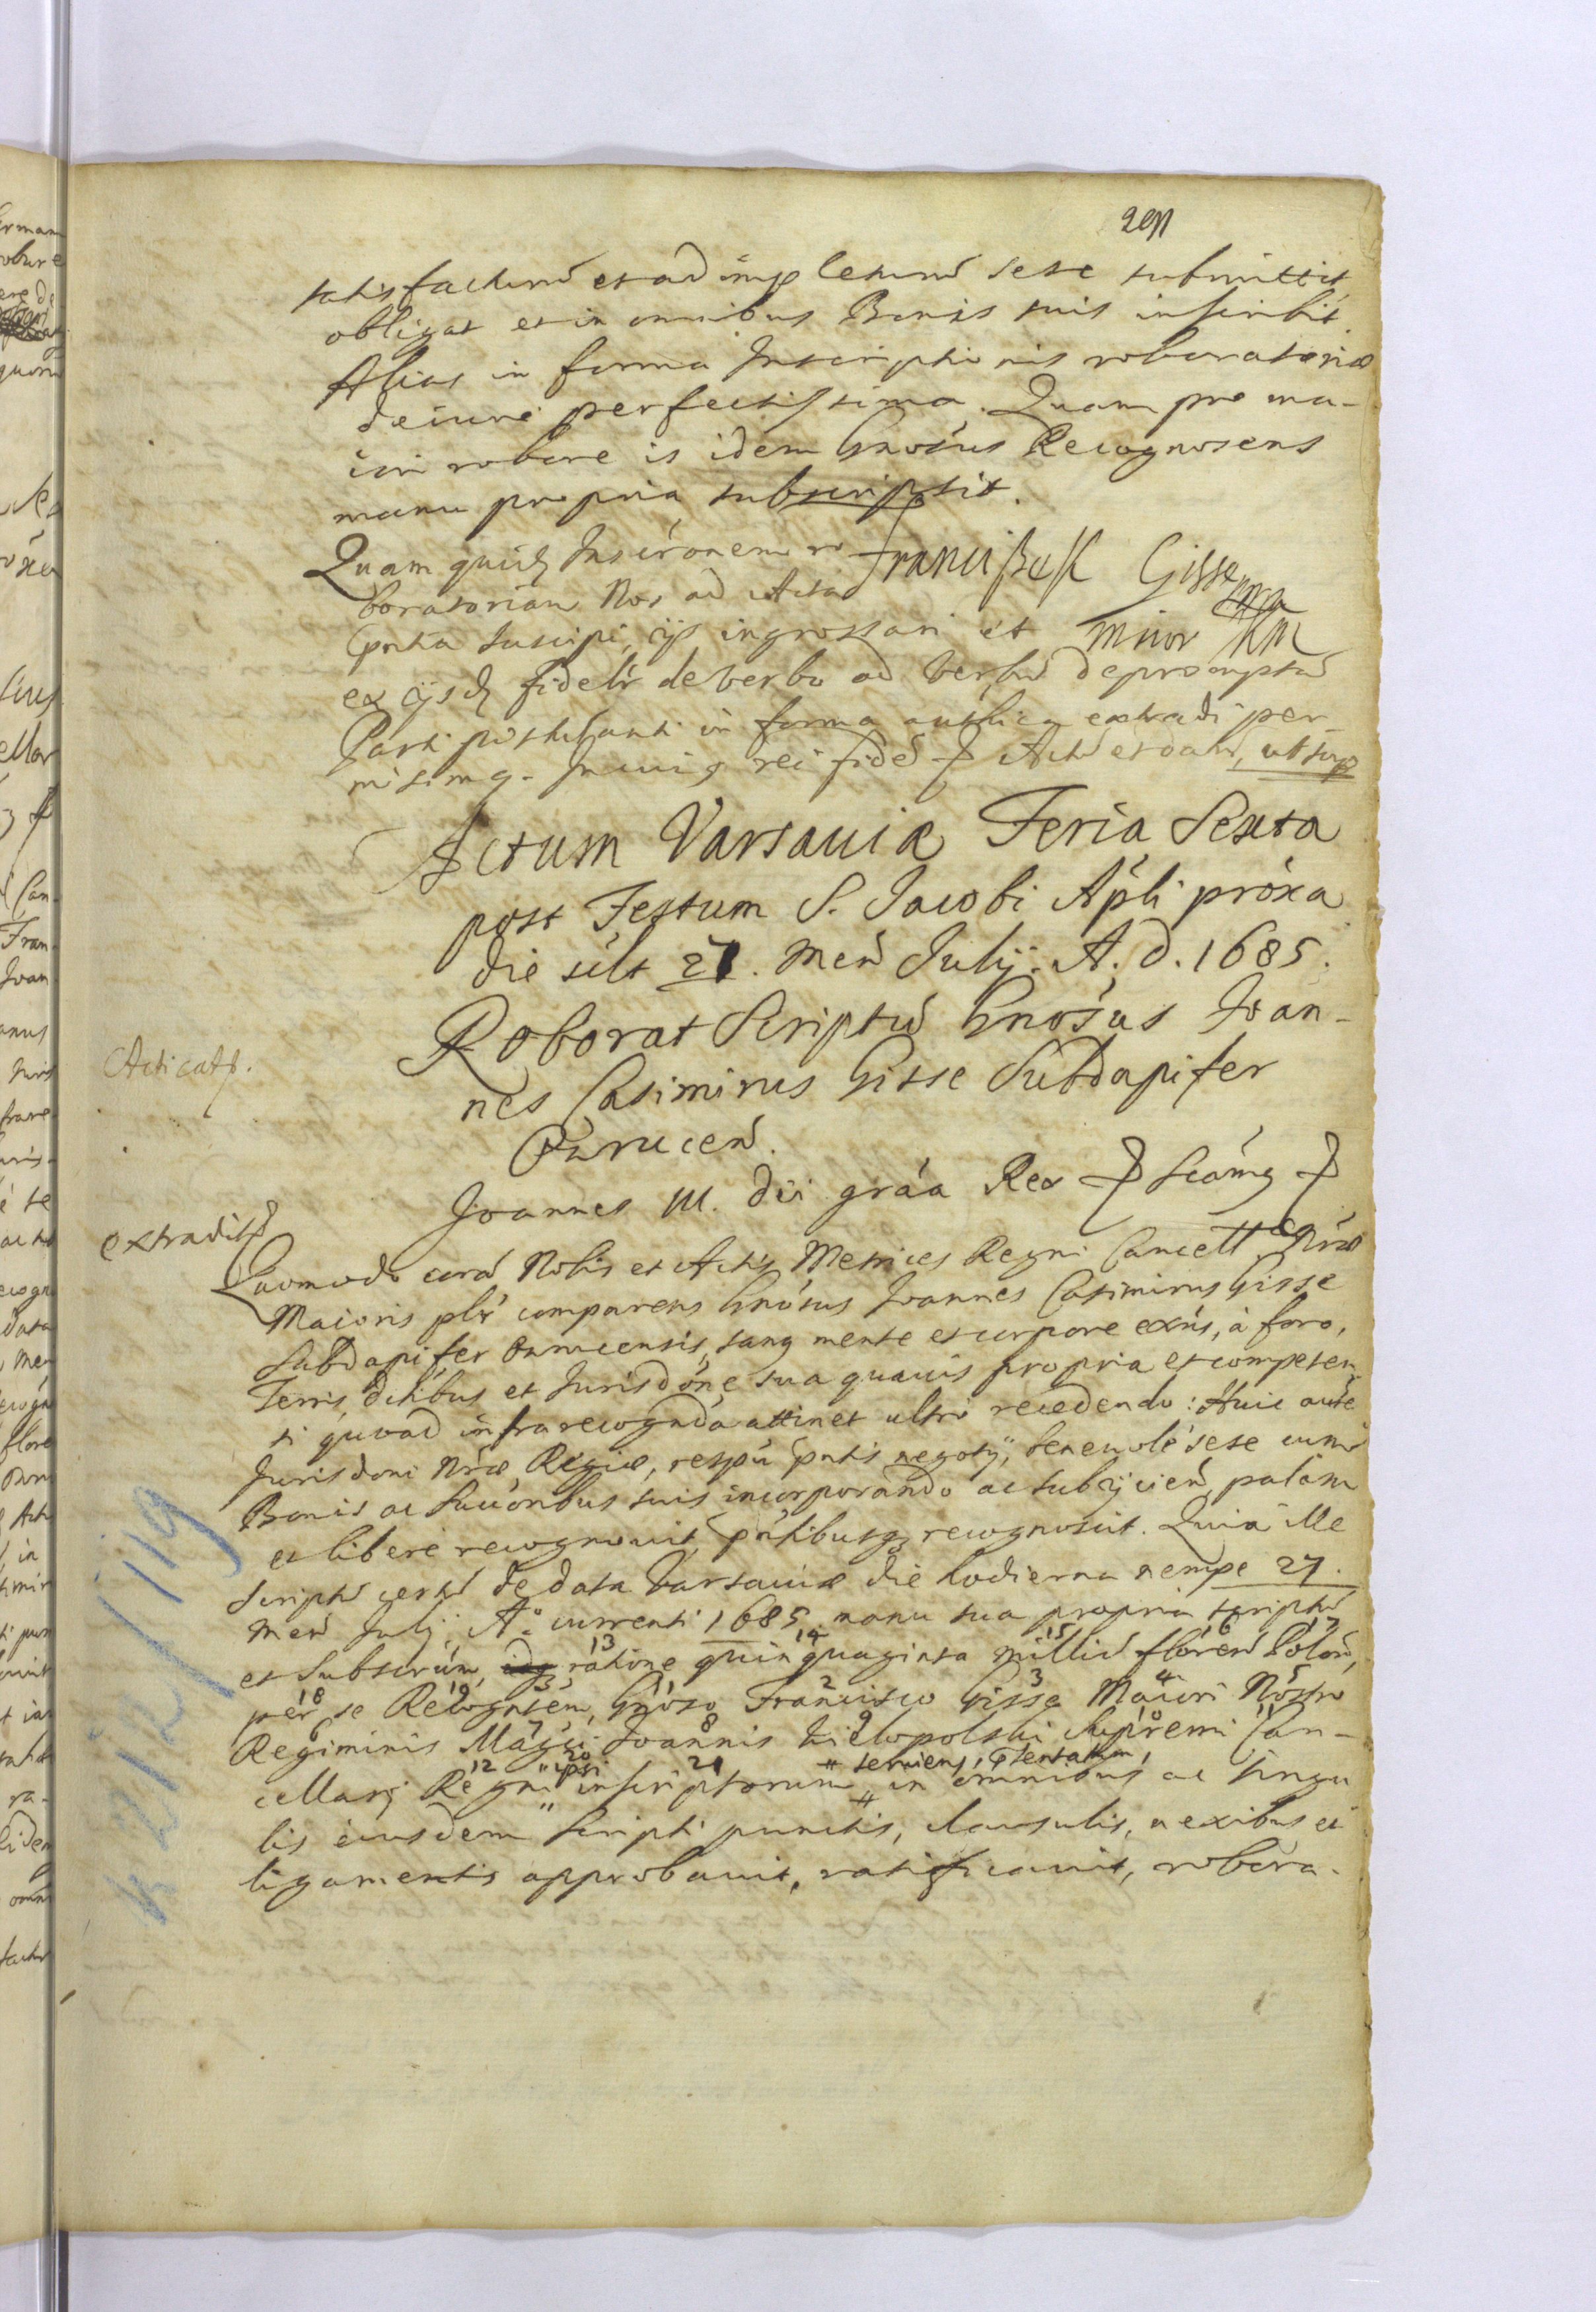 291
satisfacturũ et adimpleturũ sese submittit
obligat et in omnibus Bonis suis inscribit
Alias in forma Inscriptionis roboratoriæ
de iure perfectissima. Quam pro ma-
iori robore is idem Gnosus Recognoscens
manu propria subscripsit.
Quam quidẽ Inscrõnem ro Franciszek Gisse
boratoriam Nos ad Acta mpa
pñtia suscipi, ijs ingrossari et Minor KM
ex ijsdẽ fidelr de verbo ad verbũ depromptũ
Parti postulanti in forma authentica extradi per
misimq. In cuiq rei fidẽ Actũ et datũ, ut supra
Actum Varsaviæ Feria Sexta
post Festum S. Jacobi Apli proxa
die silt 27. Men Julij. A. d. 1685.
Roborat Scriptũ Gnosus Joan-
nes Casimirus Gisse Subdapifer
Owrucen.
Acticat.
Joannes III. Dei gráa Rex Scámg
extradit
Quomodo corã Nobis et Actis Metrices Regni Cancellæ Nræ
Maioris plr comparens Gnosus Joannes Casimirus Gisse
Subdapifer Owrucensis, sang mente et corpore exñs, à foro,
Terris, dctibus et Jurisdóne sua quavis propria et competen
ti quoad infra recognda attinet ultro recedendo: Huic autẽ
Jurisdoni Nræ Regiæ, respũ pñtis negotij, benevolé sese cum
Bonis ac Succoribus suis incorporando ac subijcien, palam
et liberè recognovit, pñtibusq recognoscit. Quia ille
Scriptũ certũ de data Varsaviæ die hodierna nempe 27.
Men Julij A. currenti 1685 manu sua propria scriptũ
13 14 15 16 17
et Subscrũm, ratione quinquaginta milliũ floren Polon,
18 19 1 2 3 4 5
per se Recognsem, Gnoso Francisco Gisse Maiori Nostro
6 7 8 9 10 11
Regiminis Magci Joannis Wielopolski Supremi Can-
12 20 ipsi 21 serviens,
cellarij Regni inscriptorum in omnibus ac singu
lis eiusdem Scripti punctis, clausulis, nexibus et
ligamentis approbavit, ratificavit, robora-